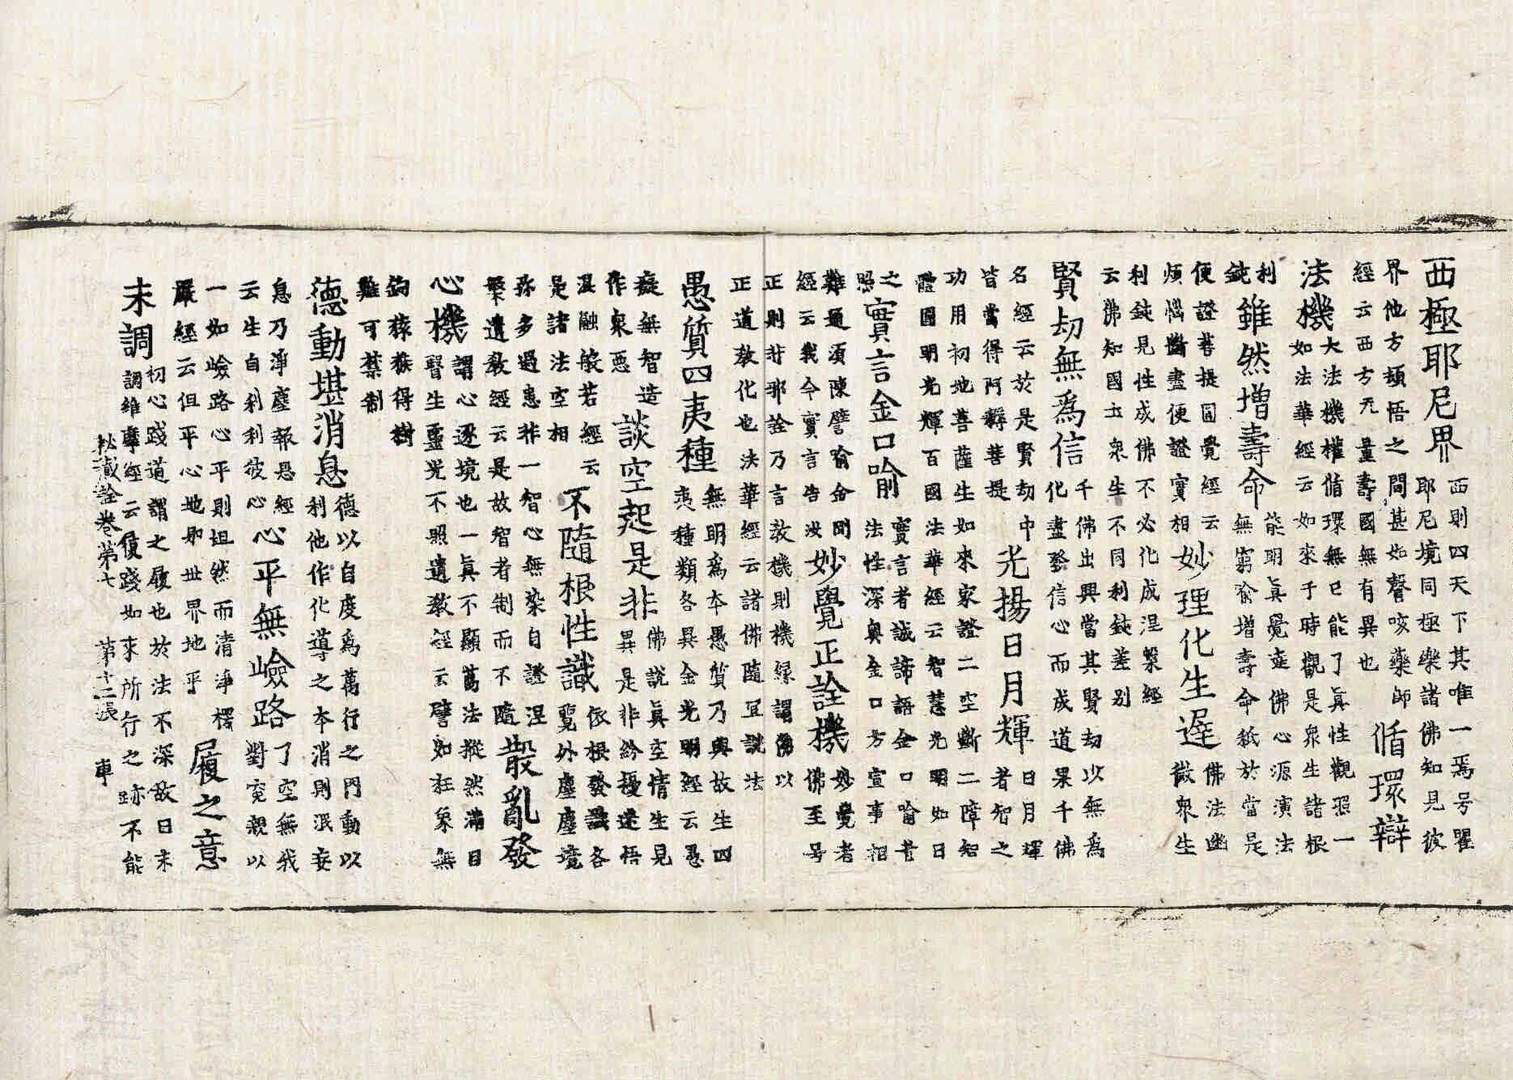 西極耶尼界
西則四天下其唯一焉号瞿
耶尼境同極樂諸佛知見彼
界他方頓悟之間甚如聲咳藥師
經云西方无量壽國無有異也
循環辯
法機
大法機權循環無已能了眞性觀照一
如法華經云如來于時觀是衆生諸根
利
鈍
雖然增壽命
能明眞覺造佛心源演法
無窮喻增壽命秖於當是
便證菩提圓覺經云
煩惱斷盡便證實相
妙理化生遲
佛法幽
微衆生
利鈍見性成佛不必化成涅槃經
云佛知國土衆生不同利鈍差别
賢劫無爲信
千佛出興當其賢劫以無爲
化盡發信心而成道果千佛
名經云於是賢劫中
皆當得阿耨菩提
光揚日月輝
日月暉
者智之
功用初地菩薩生如來家證二空斷二障知
體圓明光輝百國法華經云智慧光明如日
之
照
實言金口喻
實言者誠諦語金口喻昔
法性深奥金口方宣事相
難通須陳譬喻金剛
經云我今實言告汝
妙覺正詮機
妙覺者
佛至号
正則非邪詮乃言教機則機緣謂佛以
正道教化也法華經云諸佛隨宜說法
愚質四夷種
無明爲本愚質乃與故生四
夷種類各異金光明經云愚
癡無智造
作衆惡
談空起是非
佛說眞空情生見
異是非紛擾迷悟
混融般若經云
是諸法空相
不隨根性識
依根發識各
覽外塵塵境
弥多過患非一智心無染自證涅
槃遺教經云是故智者制而不隨
散亂發
心機
謂心逐境也一眞不顯萬法摐然滿目
瞖生靈光不照遺教經云譬如狂象無
鉤猿猴得樹
難可禁制
德動堪消息
德以自度爲萬行之門動以
利他作化導之本消則泯妄
息乃淨塵報恩經
云生自利利彼心
心平無嶮路
了空無我
對寃親以
一如嶮路心平則坦然而清淨楞
嚴經云但平心地即世界地平
履之意
未調
初心踐道謂之履也於法不深故曰未
調維摩經云復踐如來所行之跡不能
秘藏詮卷第七 第十二張 車